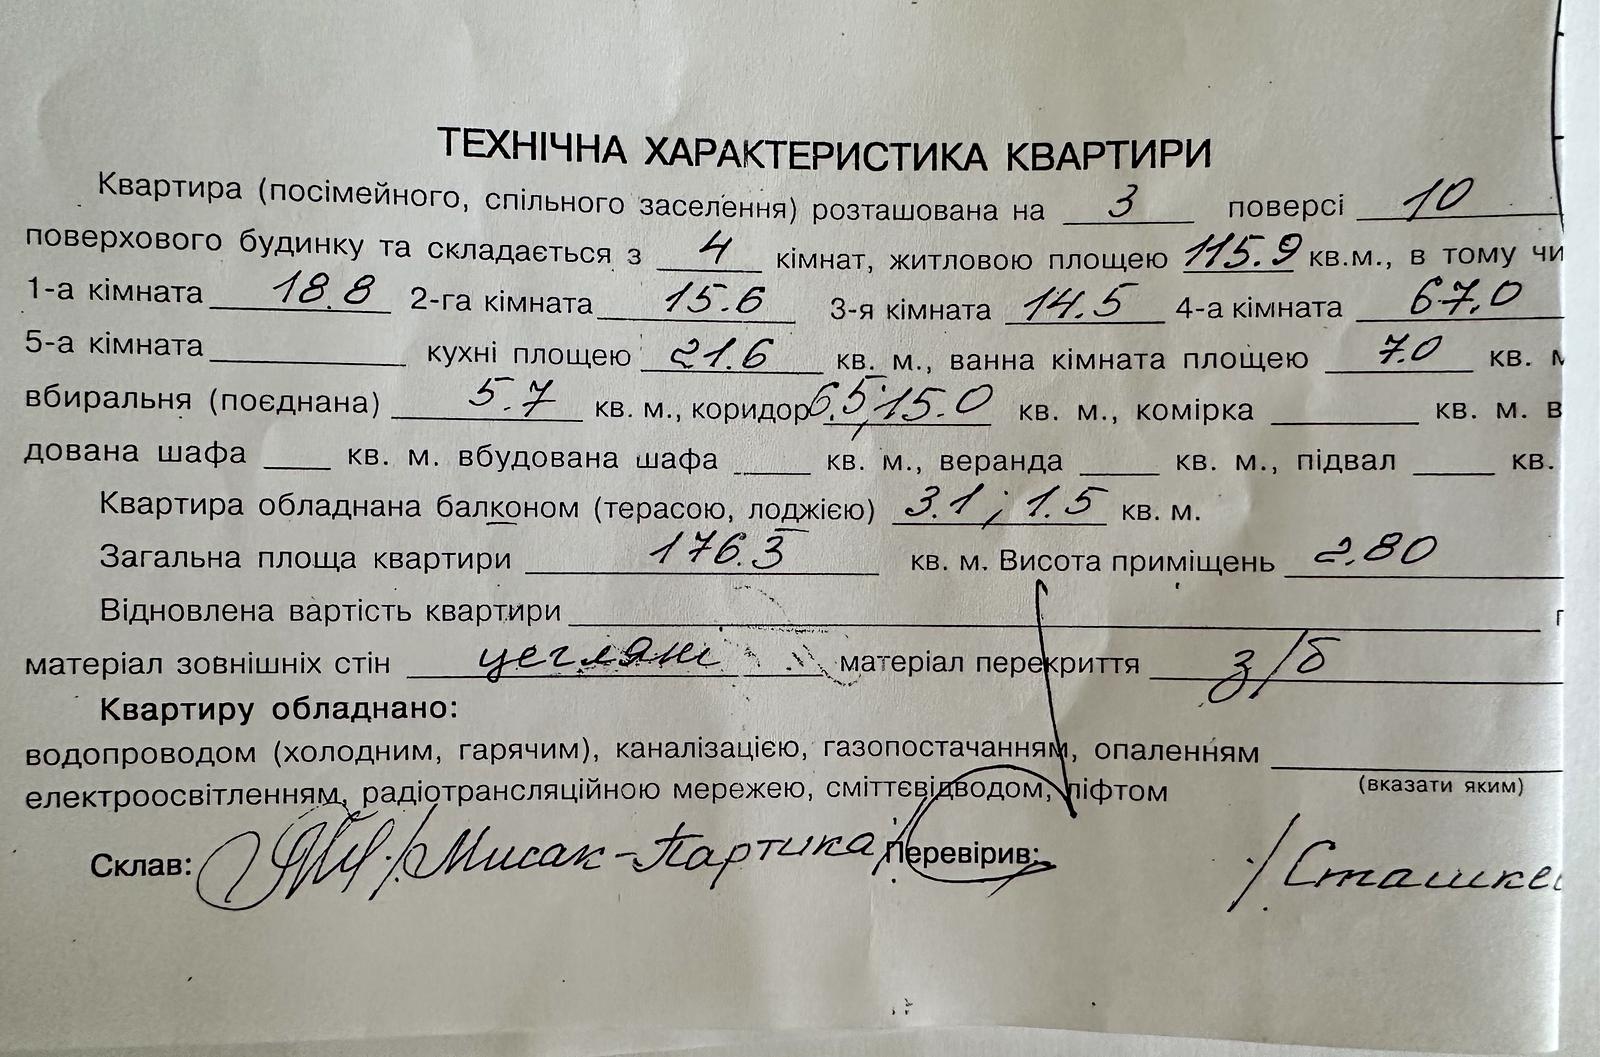 ТЕХНІЧНА ХАРАКТЕРИСТИКА КВАРТИРИ
Квартира (посімейного, спільного заселення) розташована на 3 поверсі 10
поверхового будинку та складається з 4 кімнат, житловою площею 115.9 кв.м., в тому чи
1-а кімната 18.8 2-га кімната 15.6 3-я кімната 14.5 4-а кімната 67.0
5-а кімната кухні площею 21.6 кв. м., ванна кімната площею 7.0 кв. м
вбиральня (поєднана) 5.7 кв. м., коридор 6.5; 15.0 кв. м., комірка кв. м. в
дована шафа кв. м. вбудована шафа кв. м., веранда кв. м., підвал кв.
Квартира обладнана балконом (терасою, лоджією) 3.1 ; 1.5 кв. м.
Загальна площа квартири 176.3 кв. м. Висота приміщень 2.80
Відновлена вартість квартири
матеріал зовнішніх стін цегляні матеріал перекриття з/б
Квартиру обладнано:
водопроводом (холодним, гарячим), каналізацією, газопостачанням, опаленням
(вказати яким)
електроосвітленням, радіотрансляційною мережею, сміттєвідводом, ліфтом
Склав: /Мисак-Партика/ Перевірив: /Сташке